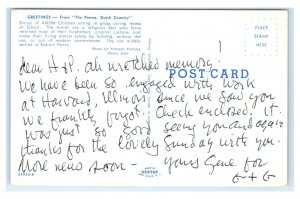 GREETINGS — From "The Penna. Dutch Country"
Group of AMISH Children sitting in grass during recess
of School. The Amish are a religious Sect who have
retained most of their forefathers, original customs, and
make their living almost solely by farming, without the
use of most modern conveniences. They are widely
settled in Eastern Penna.
Photo by Vincent Hartung
PLACE
STAMP
HERE
POST CARD
dear H & P. ah wretched memory.
We have been so engaged with work
at Harvard, Illinois since we saw you
we frankly forgot. Check enclosed. it
was just so good seeing you and again
thanks for the lovely Sunday with you.
More news soon — yours Gene for
G + G
DEXTER